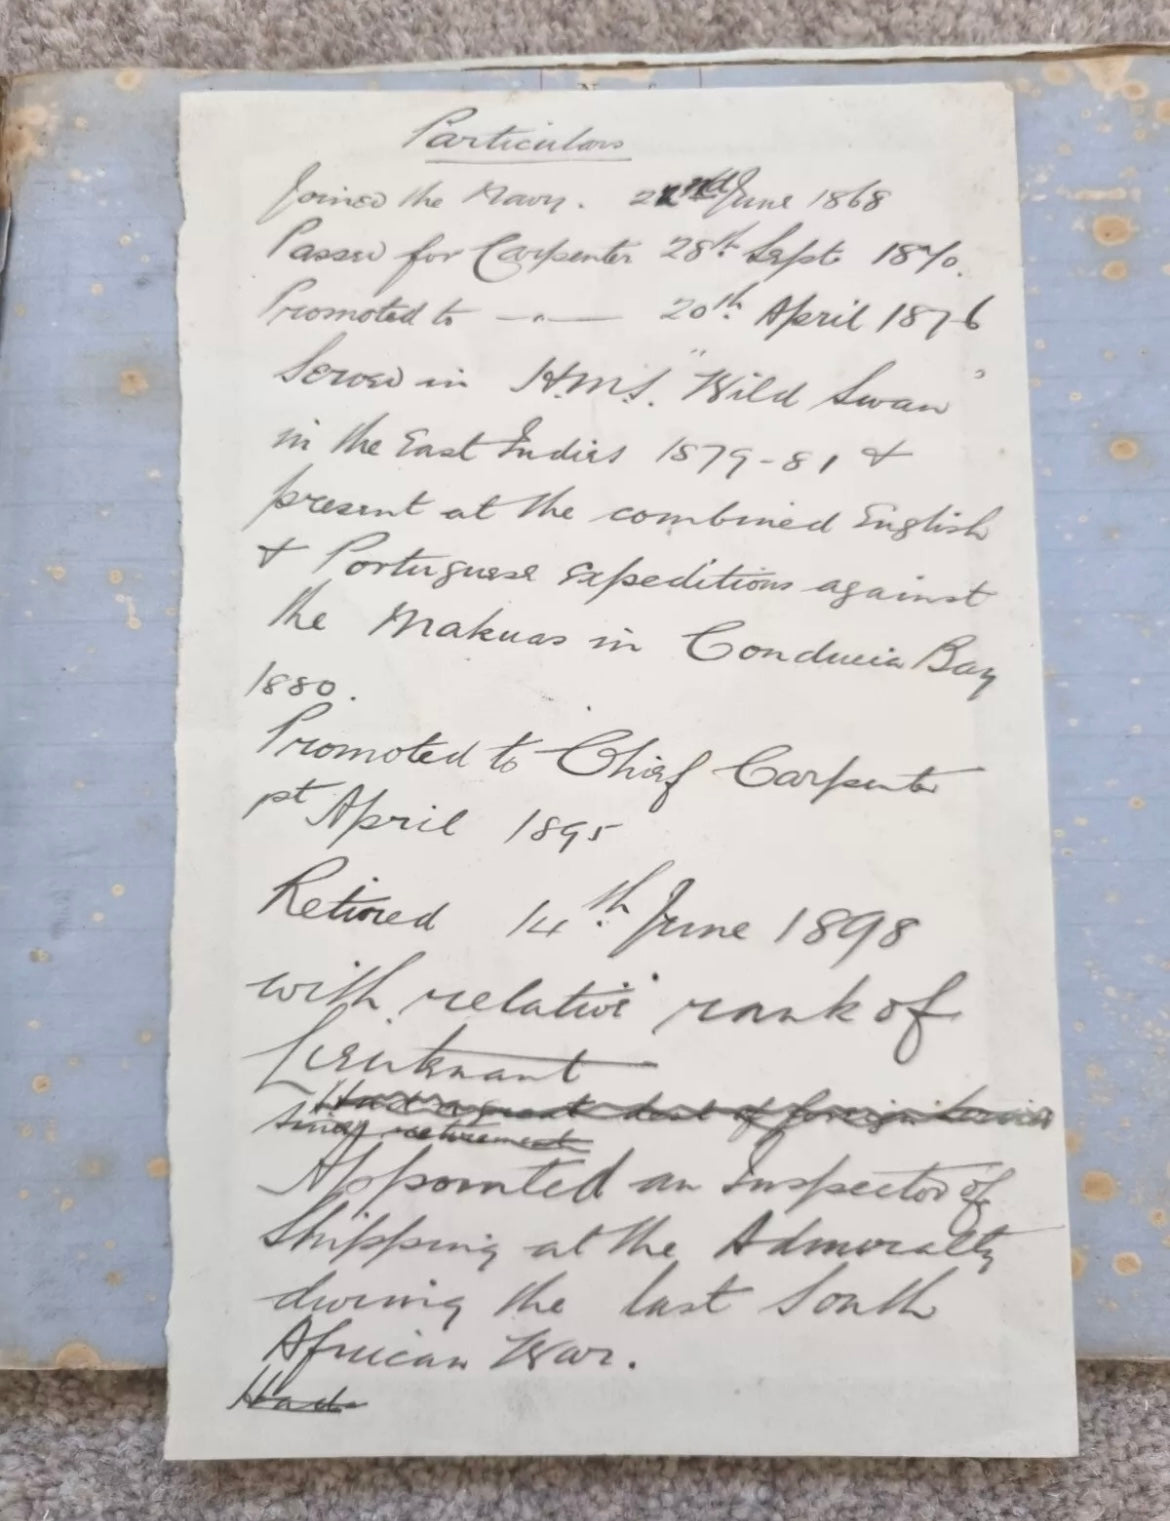 Particulars
Joined the Navy. 22nd June 1868
Passed for Carpenter 28th Sept. 1870.
Promoted to —"— 20th April 1876
Served in H.M.S. "Wild Swan"
in the East Indies 1879-81 &
present at the combined English
& Portuguese expeditions against
the Makuas in Conducia Bay
1880.
Promoted to Chief Carpenter
1st April 1895
Retired 14th June 1898
with relative rank of
Lieutenant
Had a great deal of foreign service
since retirement
Appointed an Inspector of
Shipping at the Admiralty
during the last South
African War.
Had